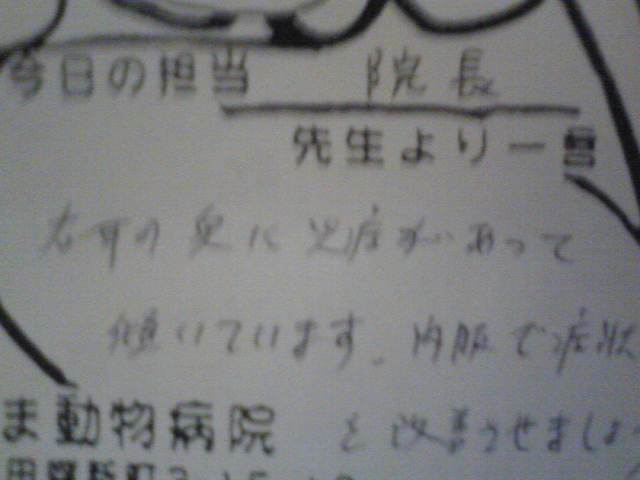 今日の担当 院長
先生より一言
右耳の奥に炎症があって
傾いています。内服で症状
を改善させましょ
ま動物病院